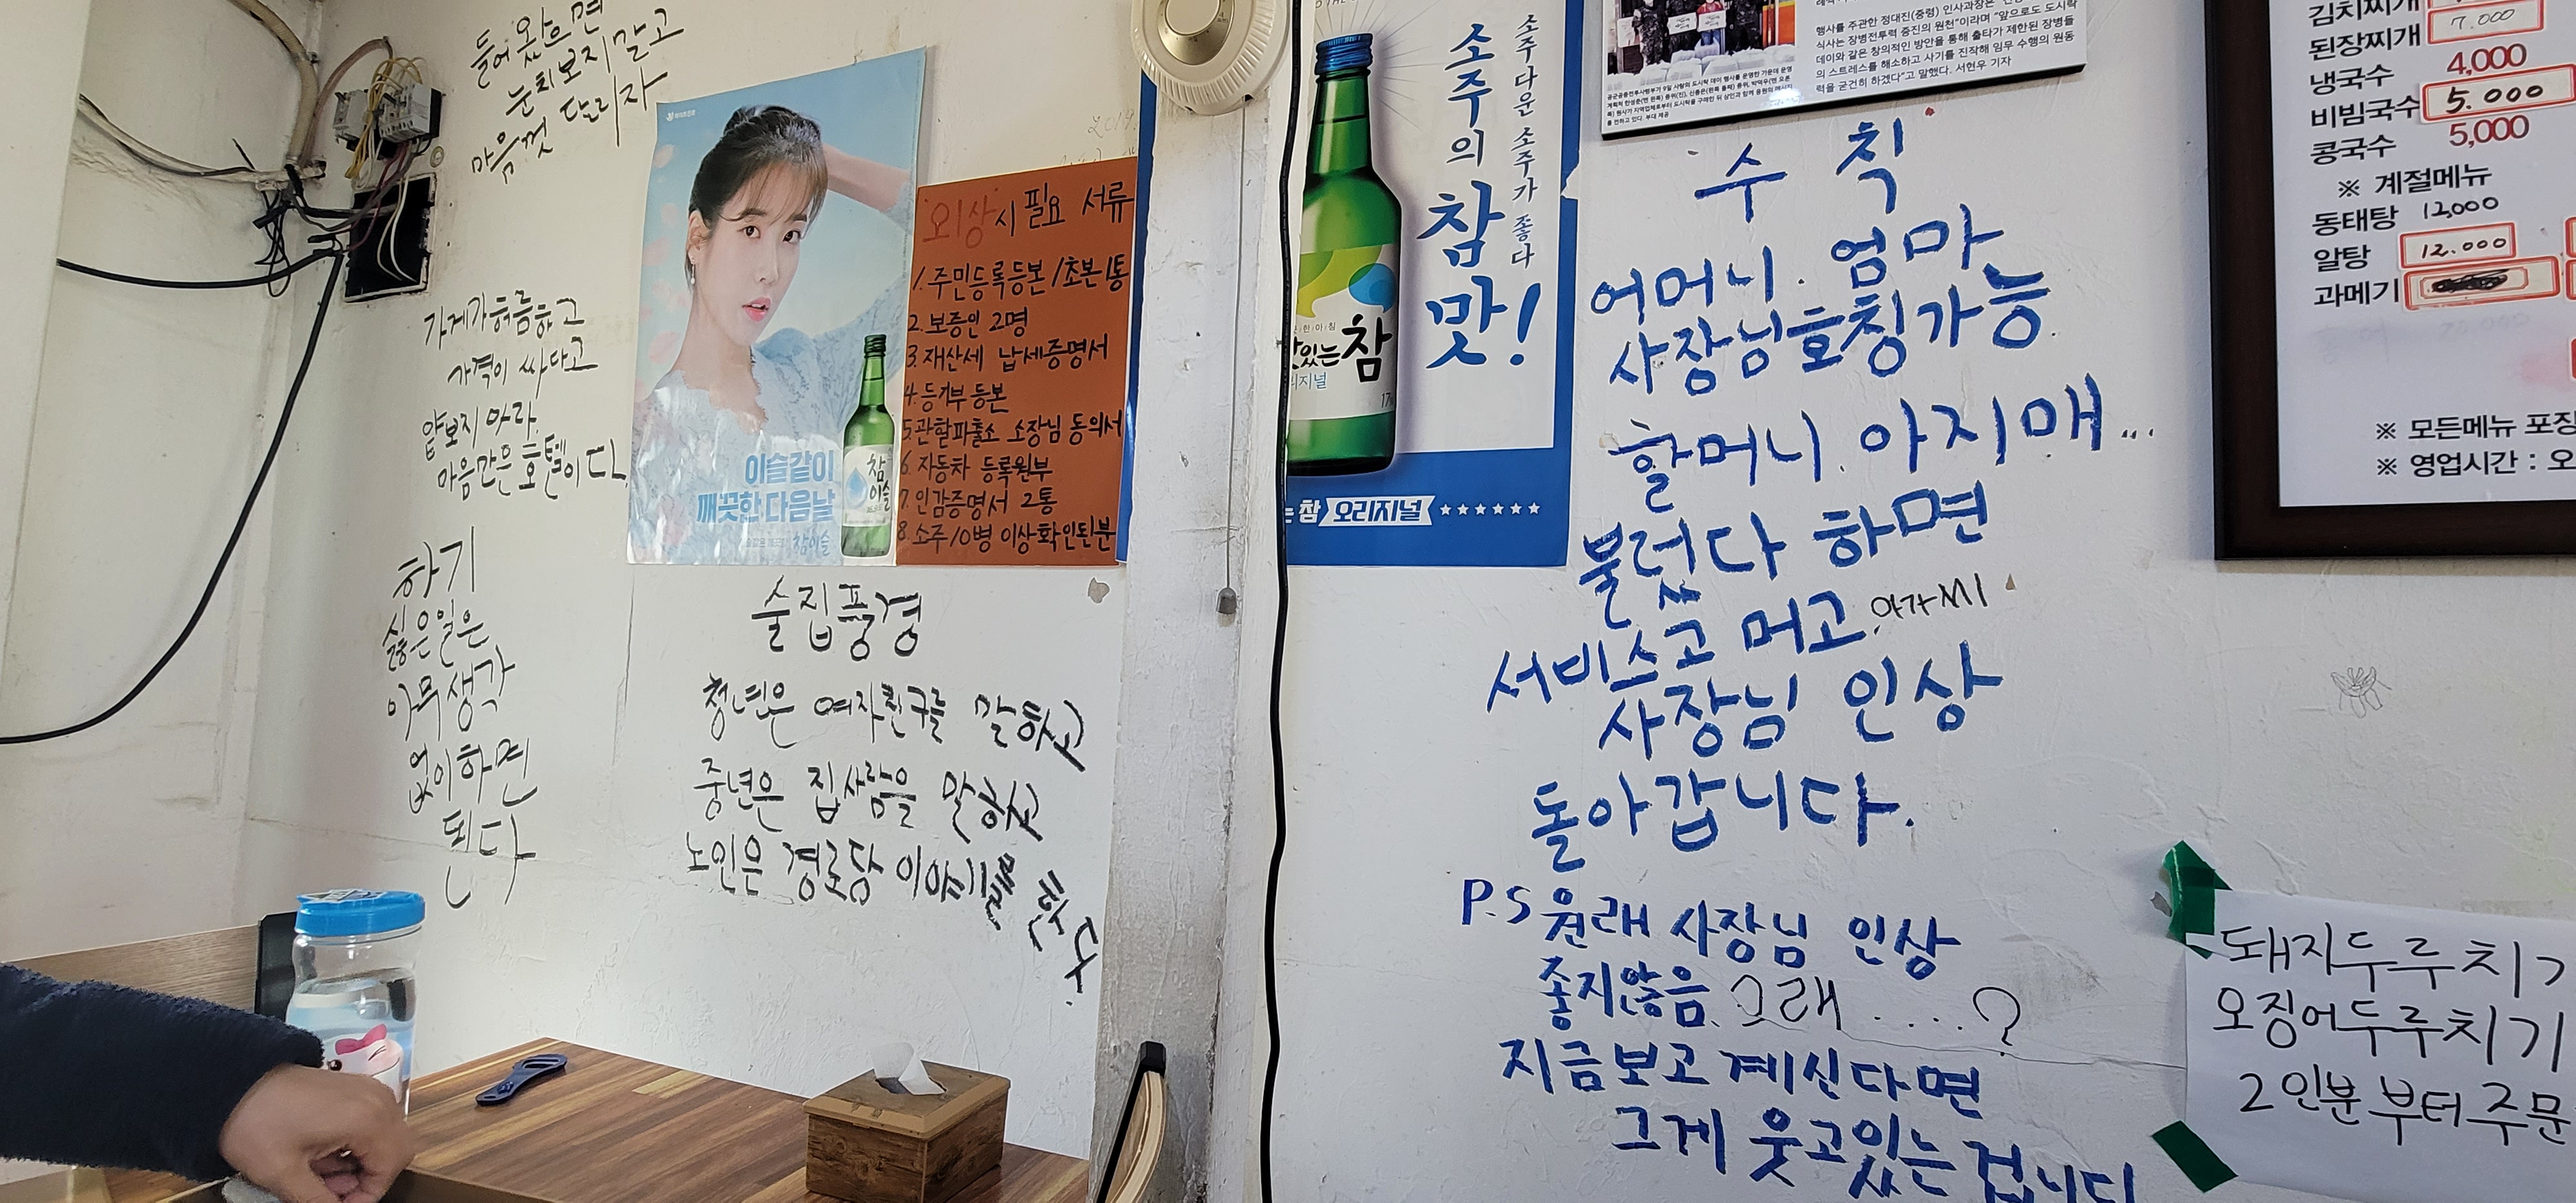 들어 왔으면
눈치보지말고
마음껏 달리자
가게가허름하고
가격이 싸다고
얕보지 마라.
마음만은 호텔이다.
하기
싫은일은
아무생각
없이하면
된다
하이트진로
이슬같이
깨끗한 다음날
참이슬
참
이슬
외상시 필요 서류
1. 주민등록등본/초본1통
2. 보증인 2명
3. 재산세 납세증명서
4. 등기부 등본
5. 관할파출소 소장님 동의서
6. 자동차 등록원부
7. 인감증명서 2통
8. 소주10병 이상확인된분
술집풍경
청년은 여자친구를 말하고
중년은 집사람을 말하고
노인은 경로당 이야기를 한다.
소주다운 소주가 좋다
소주의
참맛!
맛있는 참
리지널
는 참 오리지널
행사를 주관한 정대진(중령) 인사과장은
식사는 장병전투력 증진의 원천"이라며 "앞으로도 도시락
데이와 같은 창의적인 방안을 통해 출타가 제한된 장병들
의 스트레스를 해소하고 사기를 진작해 임무 수행의 원동
력을 굳건히 하겠다"고 말했다. 서현우 기자
수칙
어머니. 엄마
사장님호칭가능.
할머니. 아지매...
불렀다 하면
서비스고 머고. 아가씨
사장님 인상
돌아갑니다.
P.S 원래 사장님 인상
좋지않음. 그래....?
지금보고 계신다면
그게 웃고있는 겁니다
김치찌개
된장찌개 7.000
냉국수 4,000
비빔국수 5.000
콩국수 5,000
※ 계절메뉴
동태탕 12,000
알탕 12.000
과메기
※ 모든메뉴 포장
※ 영업시간 : 오
돼지두루치기
오징어두루치기
2인분 부터 주문